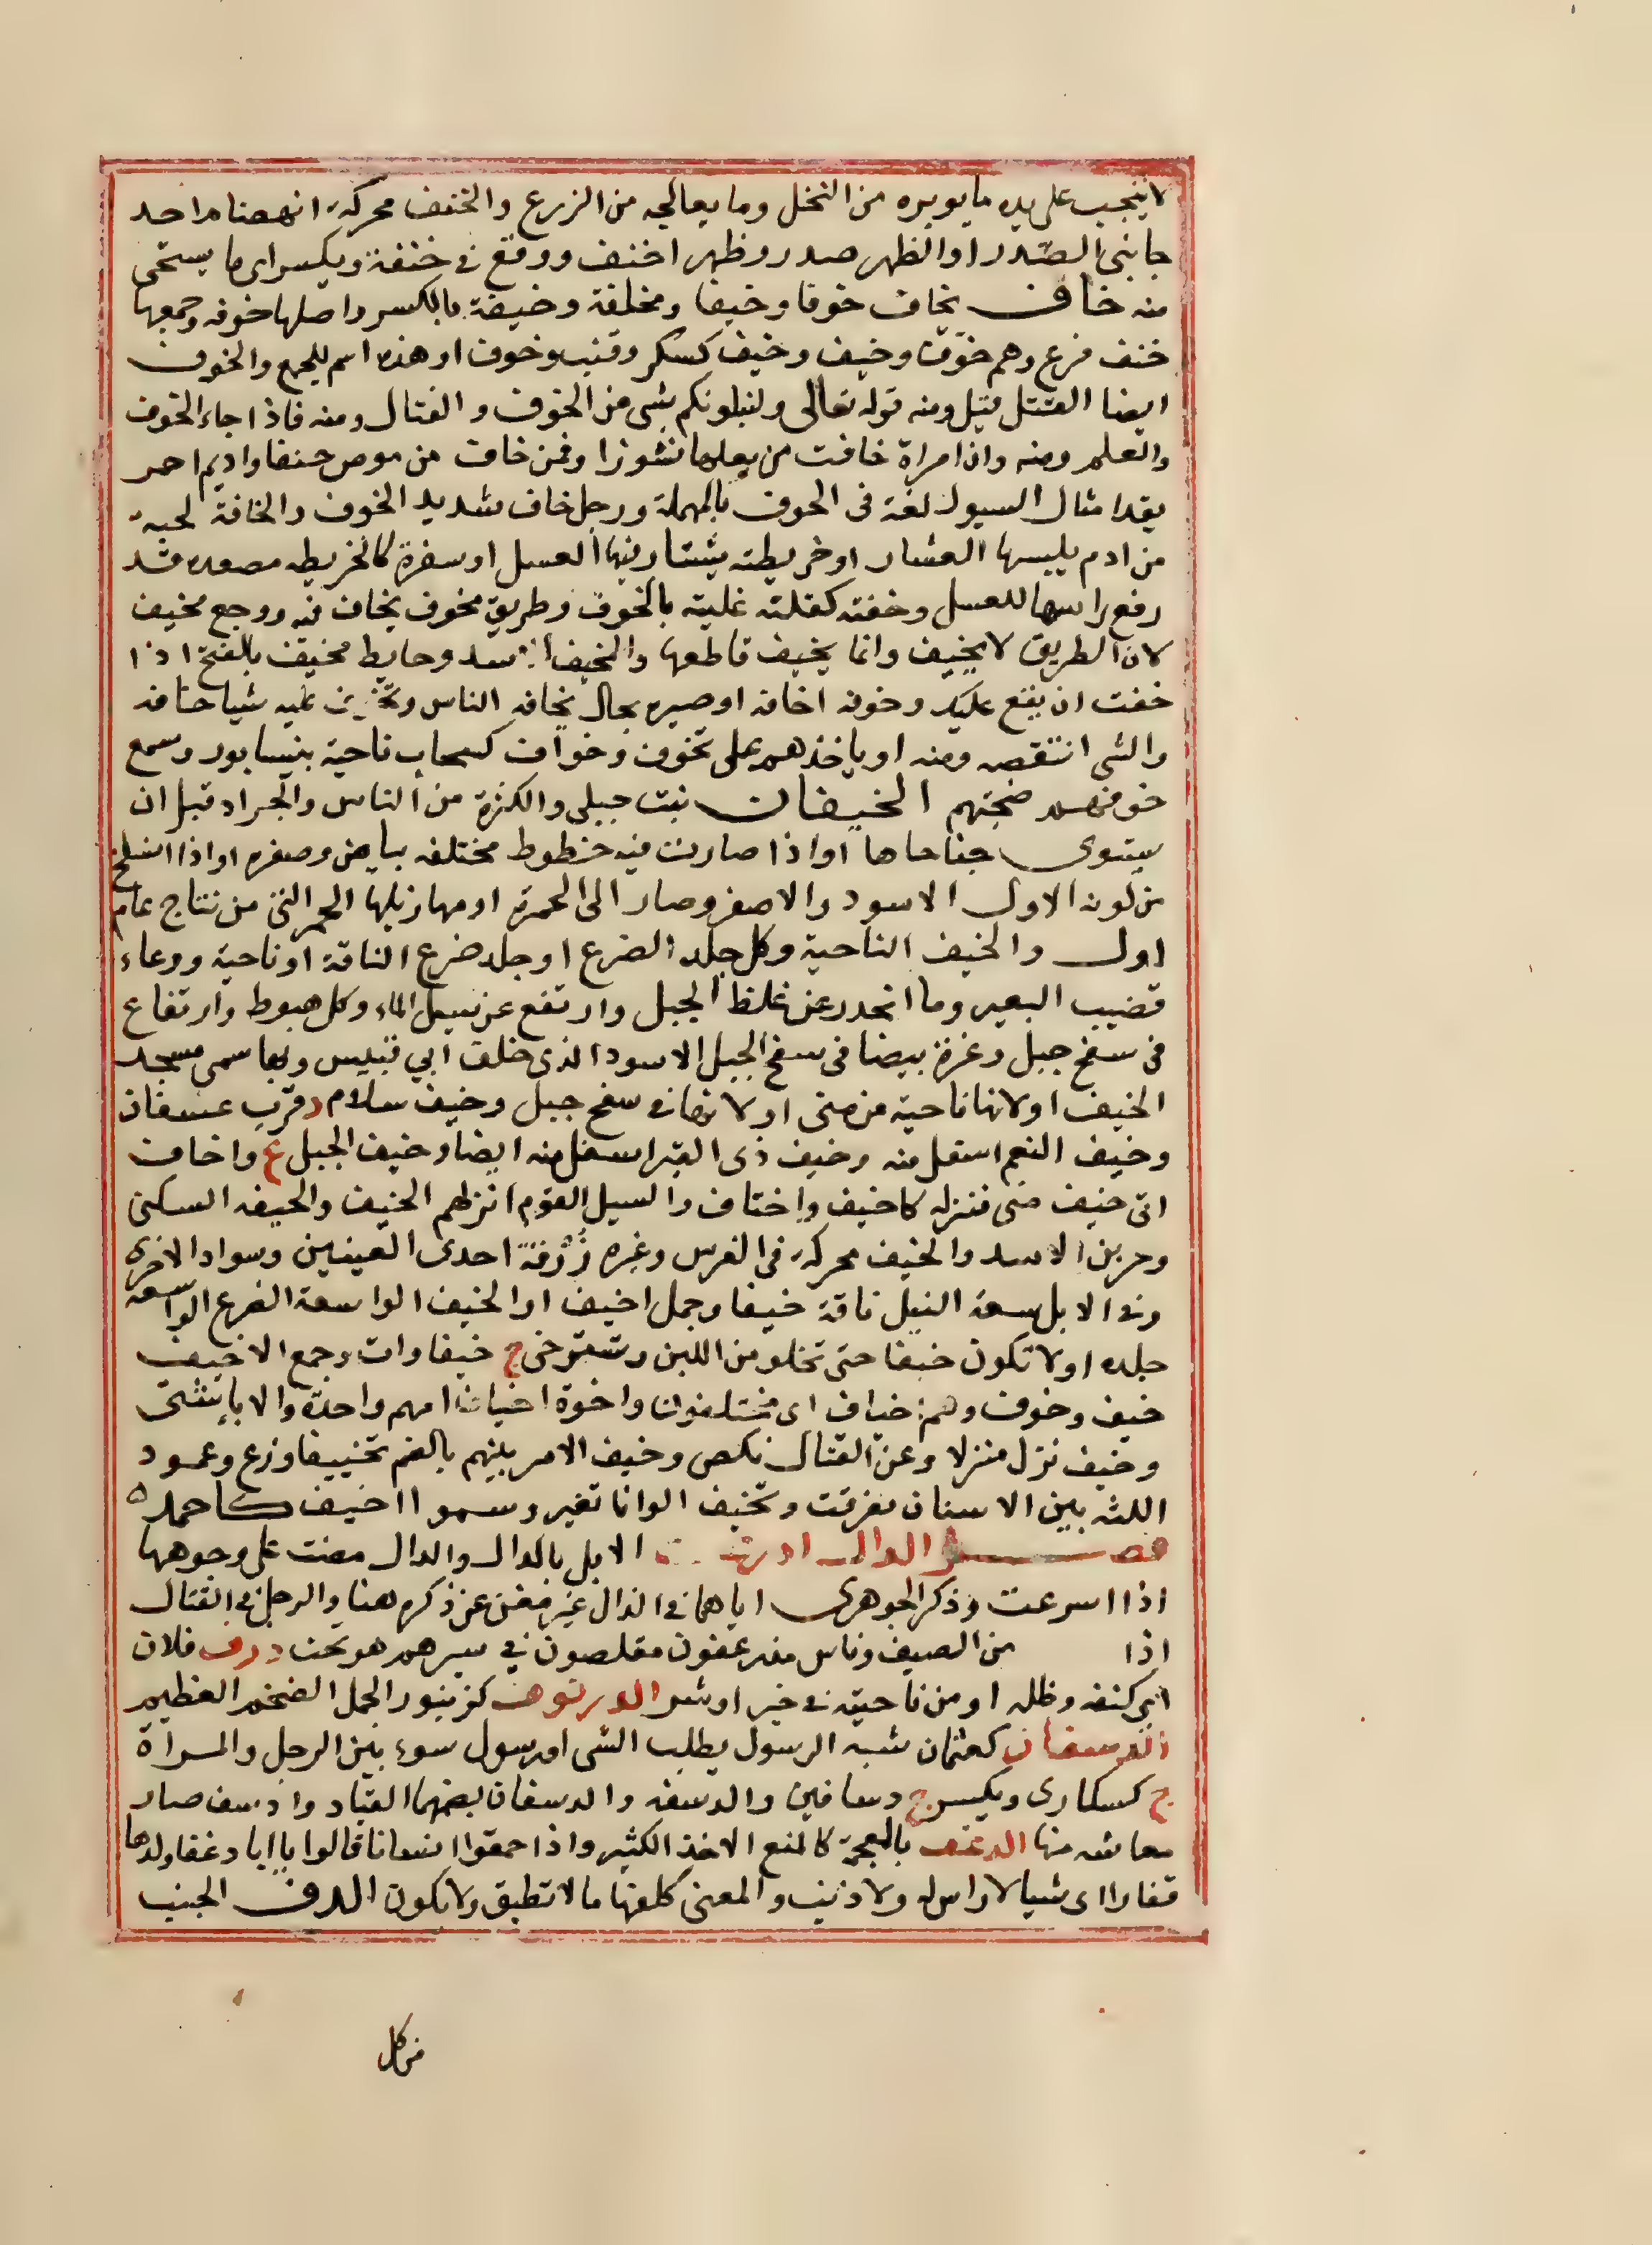 لا ينجب على يده ما يوبره من النخل وما يعالجه من الزرع والخنف محركة انهضام احد
جانبى الصدر او الظهر صدر وظهر اخنف ووقع في خنفة ويكسر اى ما يستحى
منه خاف يخاف خوفا وخيفا ومخافة وخيفة بالكسر واصلها خوفه وجمعها
خنف فزع وهم خوّف وخيف وخيف كسكر وقنب وخوف او هذه اسم للجمع والخوف
ايضا القتل قيل ومنه قوله تعالى ولنبلونكم بشى من الخوف والقتال ومنه فاذا جاء الخوف
والعلم ومنه وان امراة خافت من بعلها نشوزا وفمن خاف من موص جنفا واديم احمر
يقد امثال السيور لغة فى الحوف بالمهملة ورجل خاف شديد الخوف والخافة لجبة
من ادم يلبسها العشار او خريطة يشتار فيها العسل او سفرة كالخريطه مصعده قد
رفع راسها للعسل وخفته كقلته غلبته بالخوف وطريق مخوف يخاف فيه ووجع مخيف
لان الطريق لا يخيف وانما يخيف قاطعها والمخيف الاسد وحايط مخيف بالفتح اذا
خفت ان يقع عليك وخوفه اخافه او صيره بحال يخافه الناس وتخوف عليه شيا خافه
والشى انتقصه ومنه او ياخذهم على تخوف وخواف كسحاب ناحية بنيسابور وسمع
خوافهم ضجتهم الخيفان نبت جبلى والكثرة من الناس والجراد قبل ان
يستوى جناحاها او اذا صارت فيه خطوط مختلفه بياض وصفره او اذا انسلخ
من لونه الاول الاسود والاصفر وصار الى الحمرة او مهازيلها الحمر التى من نتاج عام
اول والخيف الناحية وكل جلد الضرع او جلد ضرع الناقة او ناحية ووعاء
قضيب البعير وما انحدر عن غلظ الجبل وارتفع عن سيل الماء وكل هبوط وارتفاع
فى سفح جبل وغرة بيضا فى سفح الجبل الاسود الذى خلف ابي قبيس وبها سمى مسجد
الخيف او لانها ناحية من منى او لانها في سفح جبل وخيف سلام د قرب عسفان
وخيف النعم اسفل منه وخيف ذى القبر اسفل منه ايضا وخيف الجبل ع واخاف
اتى خيف منى فنزله كاخيف واختاف والسيل القوم انزلهم الخيف والخيفه السكين
وعرين الاسد والخيف محركة فى الفرس وغيره زُرْقة احدى العينين وسواد الاخرى
وفي الابل سعة الثيل ناقة خيفا وجمل اخيف او الخيف الواسعة الضرع الواسعة
جلده او لا تكون خيفا حتى تخلو من اللبن وتسترخى ج خيفاوات وجمع الاخيف
خيف وخوف وهم اخياف اى مختلفون واخوة اخياف امهم واحدة والابا شتى
وخيف نزل منزلا وعن القتال نكص وخيف الامر بينهم بالضم تخييفا وزع وعمود
اللثه بين الاسنان تفرقت وتخيف الوانا تغير وسموا اخيف كاحمد ٥
فصل الدال الابل بالدال والدال مضت على وجوهها
اذا اسرعت وذكر الجوهرى اياها في الذال غير مغن عن ذكره هنا والرجل في القتال
اذا من الصيف وناس مدرعفون مقلصون في سيرهم هو تحت درف فلان
اى كنفه وظله او من ناحيته في خير او شر الدرنوف كزنبور الجمل الضخم العظيم
الدسفان كعثمان شبه الرسول يطلب الشى او رسول سوء بين الرجل والمراة
ج كسكارى ويكسر ج دسافين والدسفه والدسفان بضمهما القياد وادسف صار
معاشه منها الدغف بالمعجمة كالمنع الاخذ الكثير واذا حمقوا انسانا قالوا يا ابا دغفا ولدها
فقارا اى شيا لا راس له ولا ذنب والمعنى كلفها ما لا تطيق ولا يكون الدف الجنب
من كل